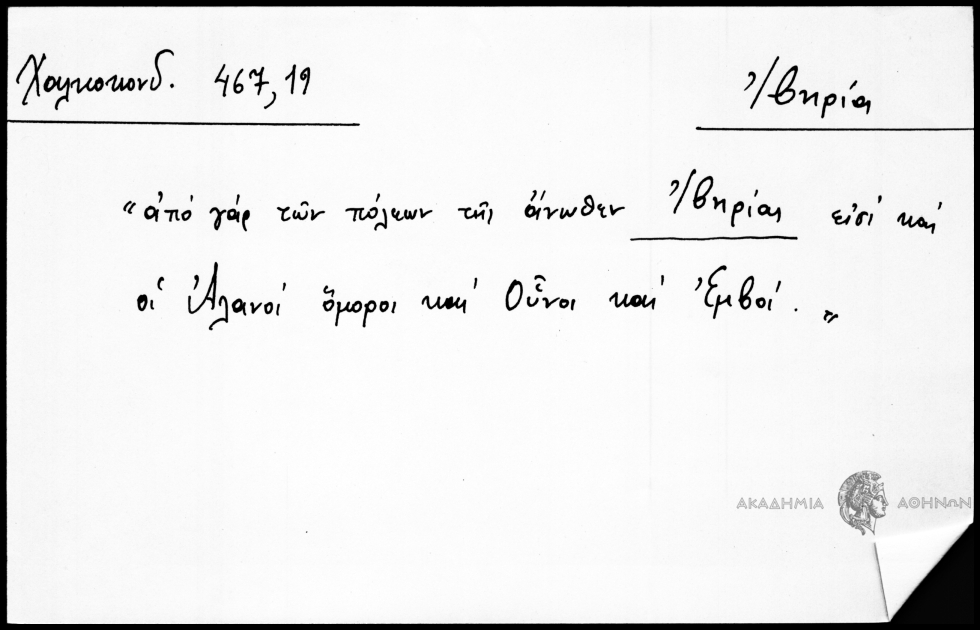 Χαλκοκονδ. 467,19
Ἰβηρία
“ἀπό γάρ τῶν πόλεων τῆς ἄνωθεν Ἰβηρίας εἰσί καί
οἱ Ἀλανοί ὅμοροι καί Οὖννοι καί Ἐμβοί.„
ΑΚΑΔΗΜΙΑ ΑΘΗΝΩΝ